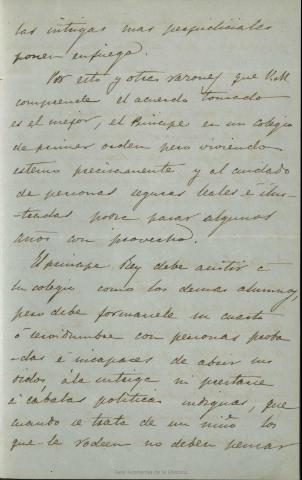 las intrigas mas perjudiciales
ponen en juego.
Por esto y otras razones que V.M.
comprende el acuerdo tomado
es el mejor, el Principe en un colegio
de primer orden pero viviendo
esterno precisamente y al cuidado
de personas seguras leales é ilus-
-tradas podrá pasar algunos
años con provecho.
El principe Rey debe asistir á
un colegio como los demas alumnos,
pero debe formarsele su cuarto
ó servidumbre con personas proba
-das é incapaces de abrir sus
oidos, á la intriga, ni prestarse
á cabalas politicas indignas, que
cuando se trata de un niño los
que le rodeen no deben pensar
Real Academia de la Historia